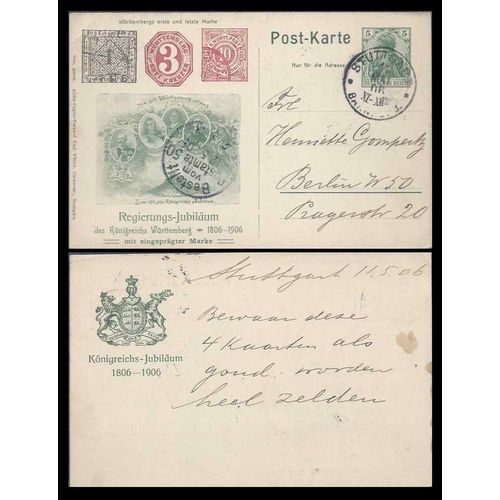 Württembergs erste und letzte Marke
1
WÜRTTEMBERG
3
KREUZER
Post-Karte
Nur für die Adresse
5
5
STUTTGART
06
Bestellt
vom
Postamte 50
Frl
Henriette Gompertz
Berlin W 50
Pragerstr 20
Regierungs-Jubiläum
des Königreichs Württemberg 1806-1906
mit eingeprägter Marke
Stuttgart 11.5.06
Königreichs-Jubiläum
1806-1906
Bewaar dese
4 Kaarten als
goud. worden
heel zelden